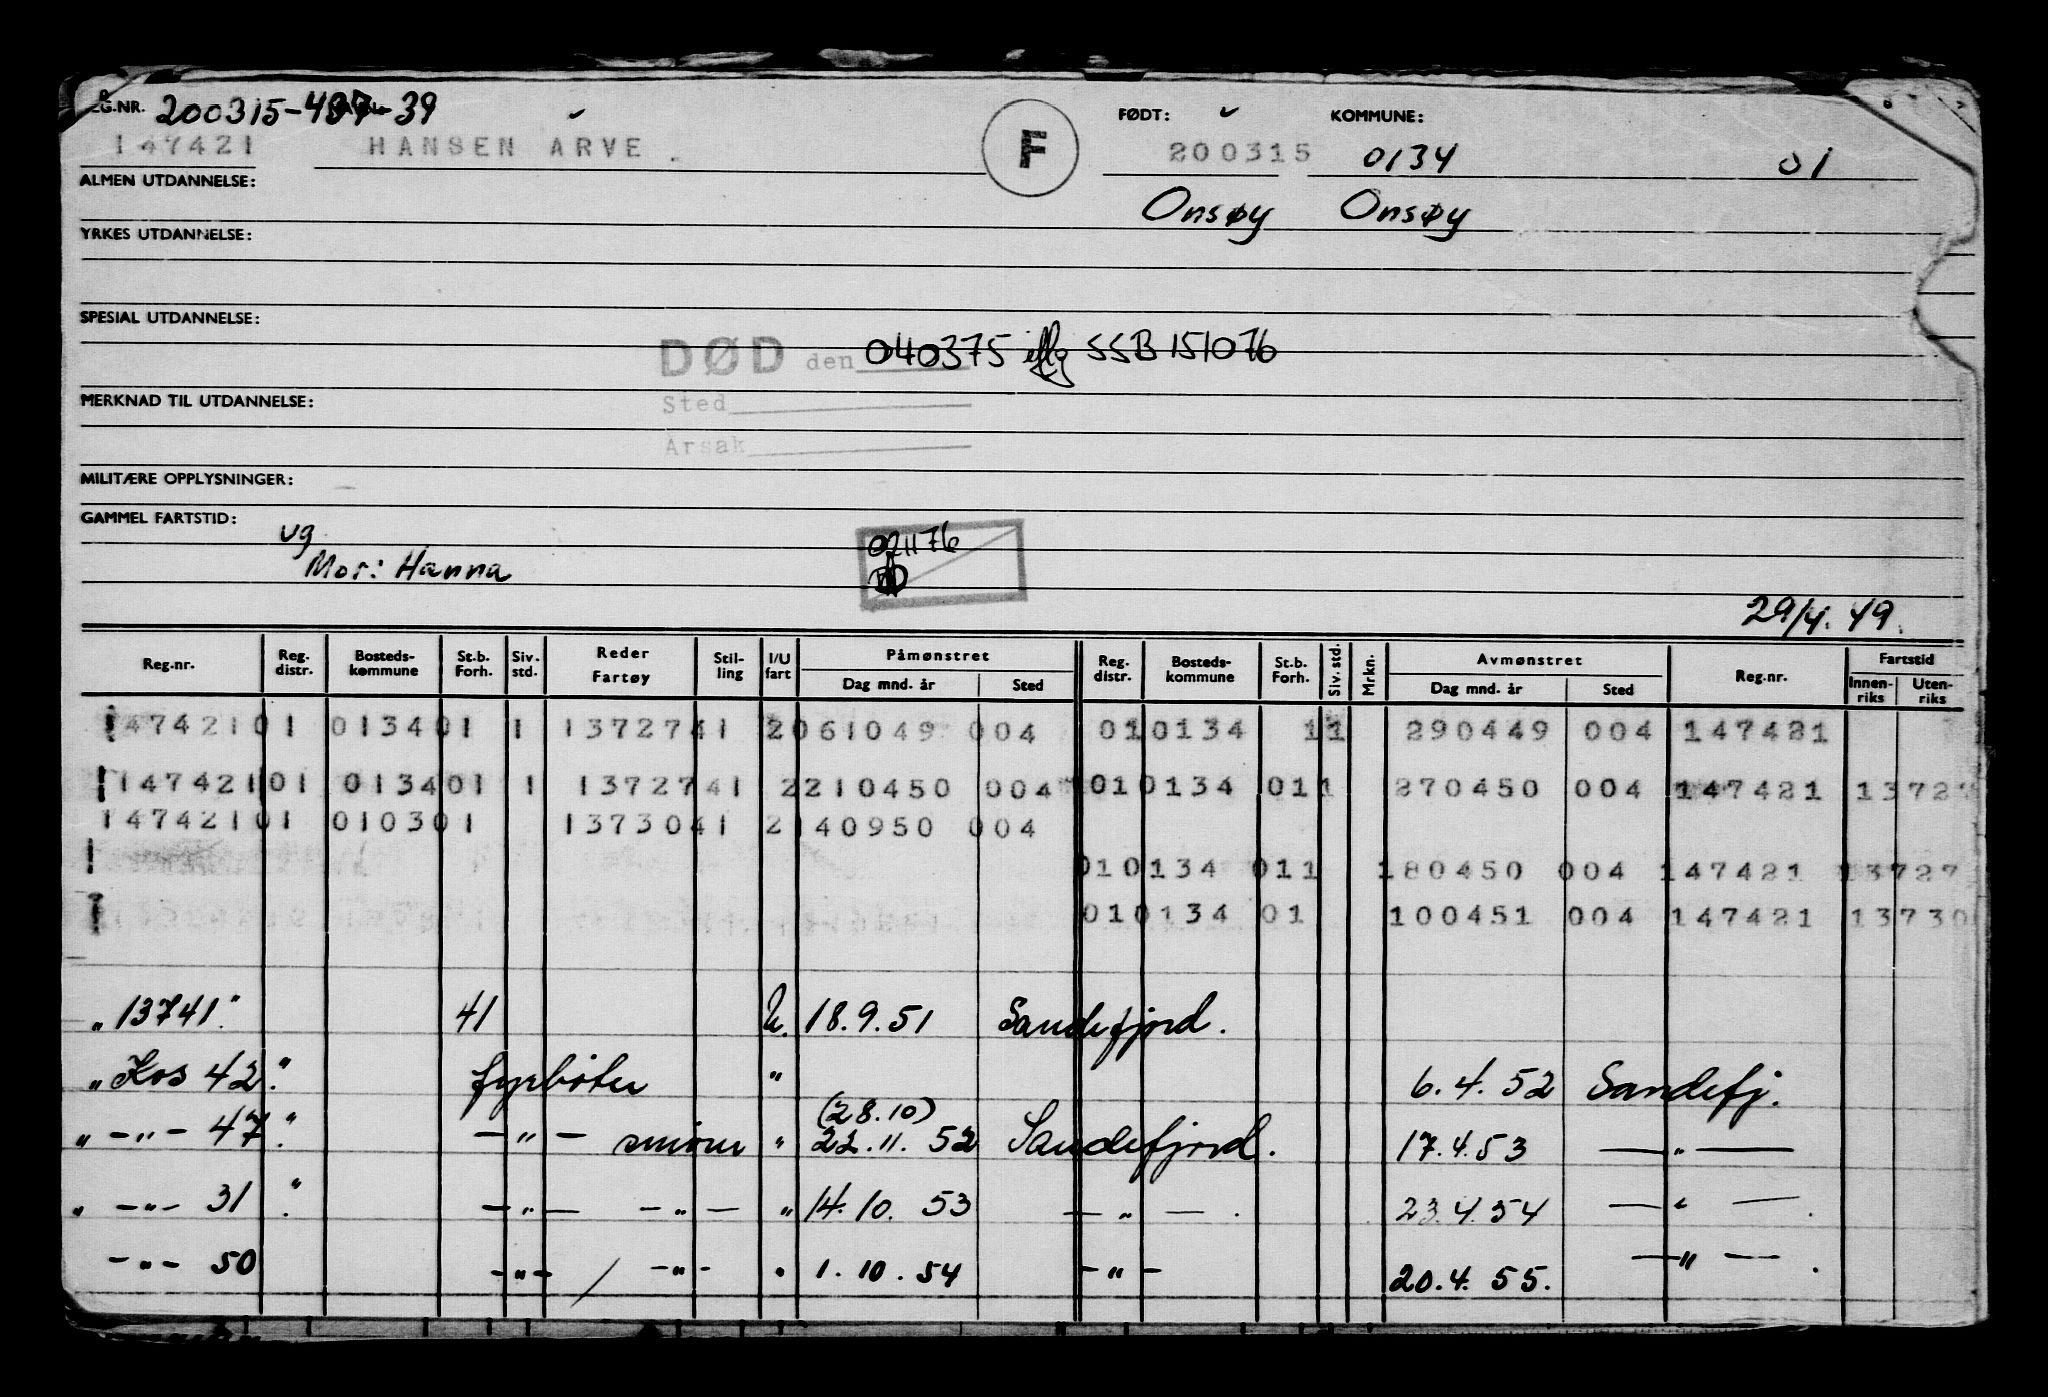 REG.NR. 200315-437-39 FØDT: KOMMUNE:
147421 HANSEN ARVE. F 200315 0134 01
ALMEN UTDANNELSE: Onsøy Onsøy
YRKES UTDANNELSE:
SPESIAL UTDANNELSE:
DØD den 040375 iflg SSB 151076
MERKNAD TIL UTDANNELSE: Sted
Årsak
MILITÆRE OPPLYSNINGER:
GAMMEL FARTSTID:
ug 021176
Mor: Hanna
29/4. 49.
Reg.nr. Reg. distr. Bosteds-kommune St.b. Forh. Siv. std. Reder Fartøy Stil-ling I/U fart Påmønstret Dag mnd. år Sted Reg. distr. Bosteds-kommune St.b. Forh. Siv. std. Mrkn. Avmønstret Dag mnd. år Sted Reg.nr. Fartstid Innen-riks Uten-riks
147421 01 0134 01 1 13727 41 2 061049 004 01 0134 1 1 290449 004 147421
147421 01 0134 01 1 13727 41 2 210450 004 01 0134 01 1 270450 004 147421 13727
147421 01 0103 01 13730 41 2 140950 004
01 0134 01 1 180450 004 147421 13727
01 0134 01 100451 004 147421 13730
"13741." 41 U. 18.9.51 Sandefjord.
"Kos 42." fyrbøter " 6.4.52 Sandefj.
(28.10)
" -"- 47." -"- smører " 22.11.52 Sandefjord. 17.4.53 -"-
" -"- 31 ". -"- -"- " 14.10.53 -"-. 23.4.54 -"-.
-"- 50 -"- / -"- " 1.10.54 -"- 20.4.55. -"-.